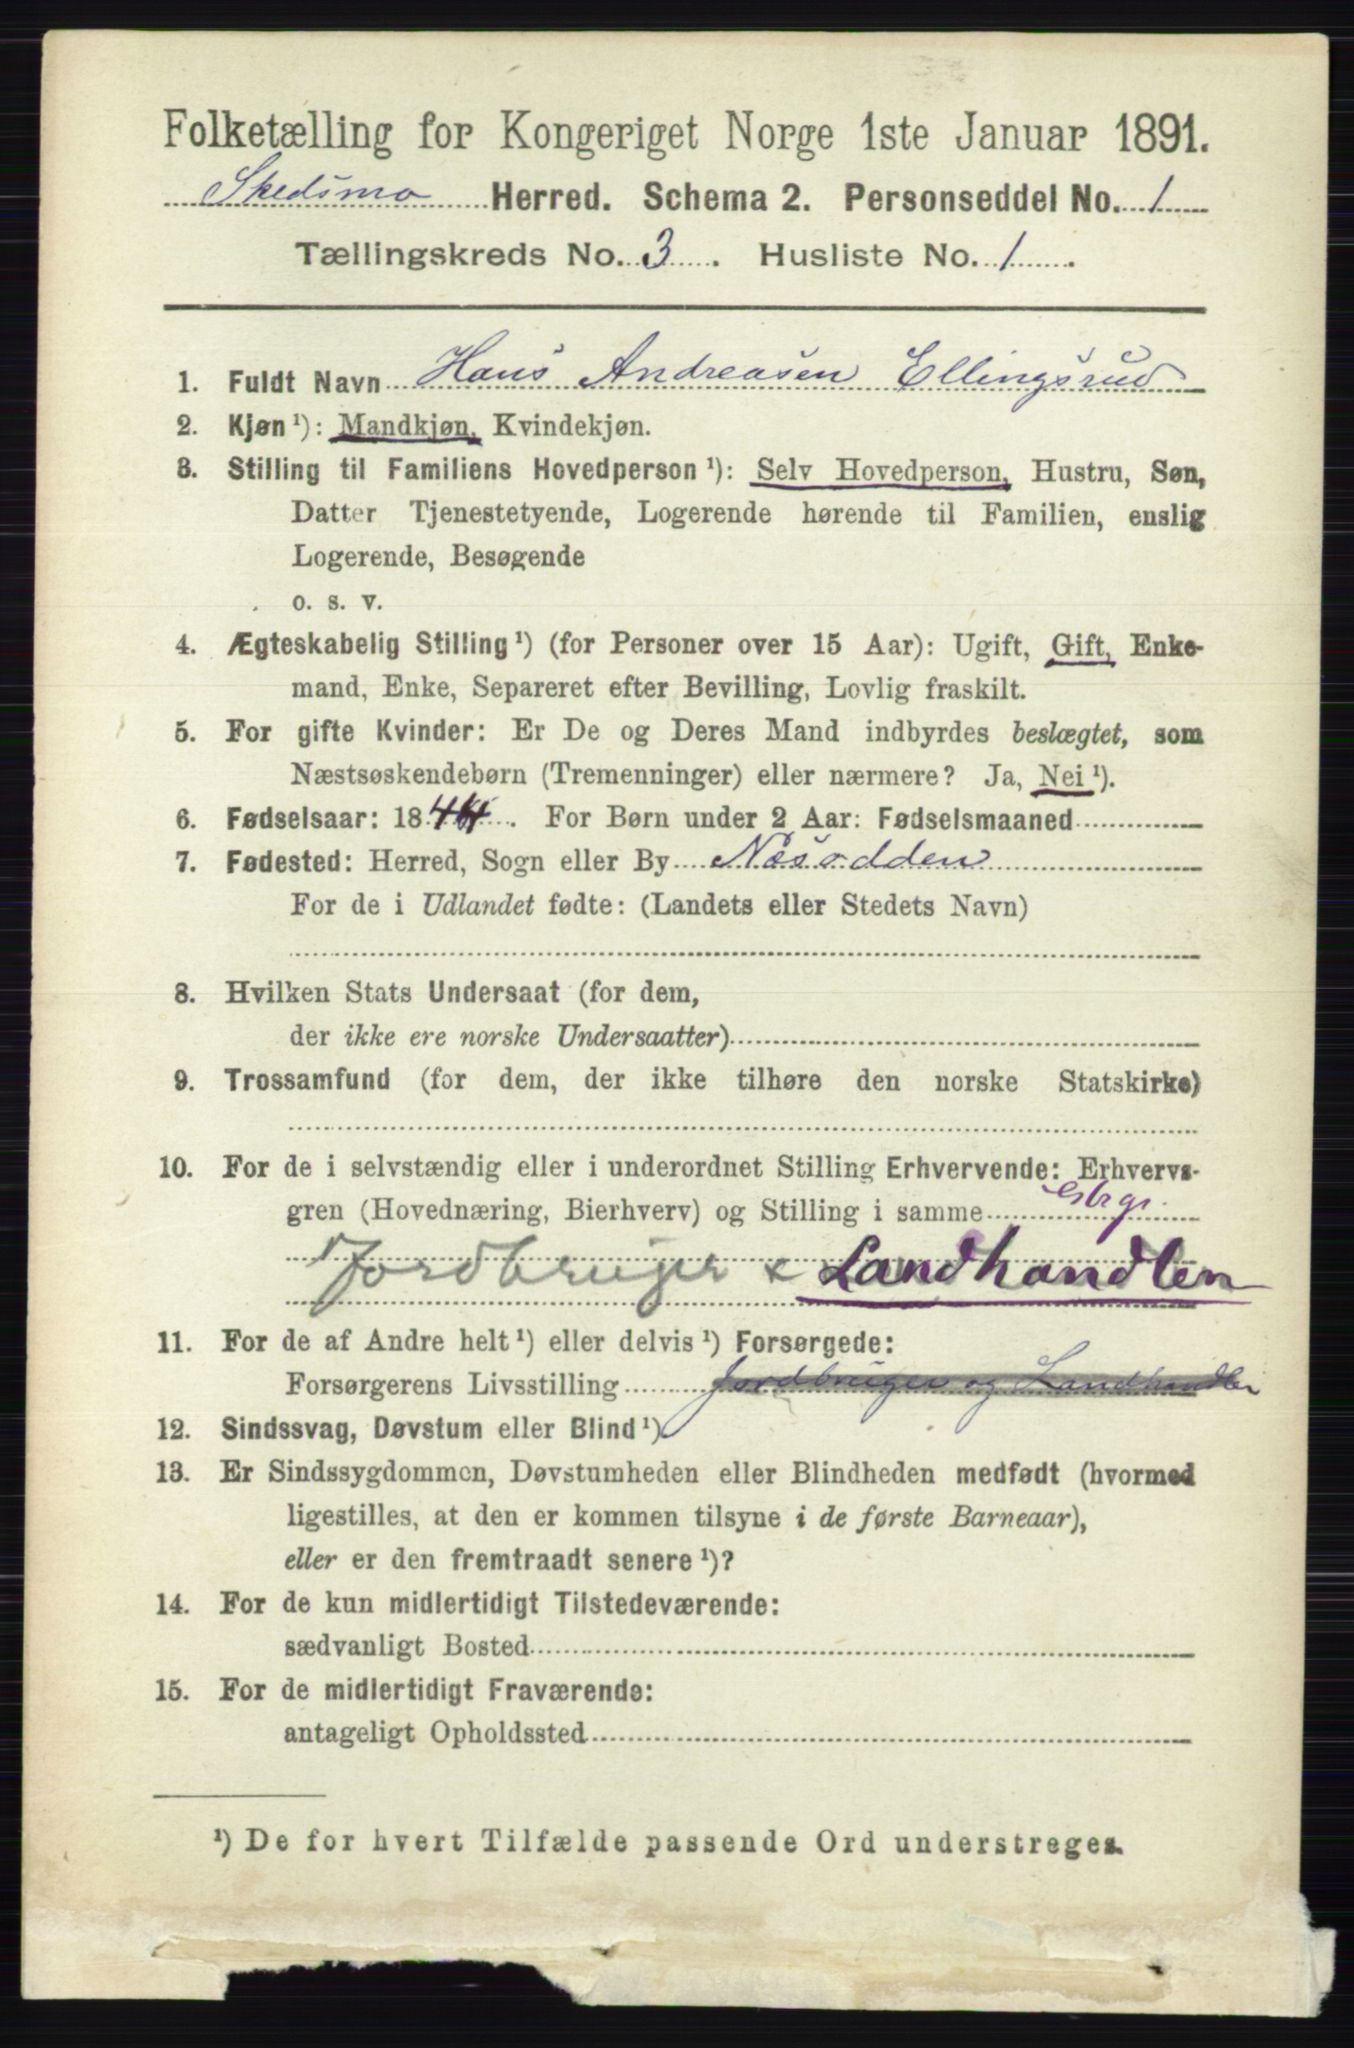 Folketælling for Kongeriget Norge 1ste Januar 1891.
Skedsmo Herred. Schema 2. Personseddel No. 1
Tællingskreds No. 3. Husliste No. 1.
1. Fuldt Navn Hans Andreasen Ellingsrud
2. Kjøn ¹): Mandkjøn, Kvindekjøn.
3. Stilling til Familiens Hovedperson ¹): Selv Hovedperson, Hustru, Søn,
Datter Tjenestetyende, Logerende hørende til Familien, enslig
Logerende, Besøgende
o. s. v.
4. Ægteskabelig Stilling ¹) (for Personer over 15 Aar): Ugift, Gift, Enke-
mand, Enke, Separeret efter Bevilling, Lovlig fraskilt.
5. For gifte Kvinder: Er De og Deres Mand indbyrdes beslægtet, som
Næstsøskendebørn (Tremenninger) eller nærmere? Ja, Nei ¹).
6. Fødselsaar: 1844. For Børn under 2 Aar: Fødselsmaaned
7. Fødested: Herred, Sogn eller By Næsodden
For de i Udlandet fødte: (Landets eller Stedets Navn)
8. Hvilken Stats Undersaat (for dem,
der ikke ere norske Undersaatter)
9. Trossamfund (for dem, der ikke tilhøre den norske Statskirke)
10. For de i selvstændig eller i underordnet Stilling Erhvervende: Erhvervs-
gren (Hovednæring, Bierhverv) og Stilling i samme
Jordbruger & Landhandlen
11. For de af Andre helt ¹) eller delvis ¹) Forsørgede:
Forsørgerens Livsstilling Jordbruger og Landhandler
12. Sindssvag, Døvstum eller Blind ¹).
13. Er Sindssygdommen, Døvstumheden eller Blindheden medfødt (hvormed
ligestilles, at den er kommen tilsyne i de første Barneaar),
eller er den fremtraadt senere ¹)?
14. For de kun midlertidigt Tilstedeværende:
sædvanligt Bosted
15. For de midlertidigt Fraværende:
antageligt Opholdssted
¹) De for hvert Tilfælde passende Ord understreges.